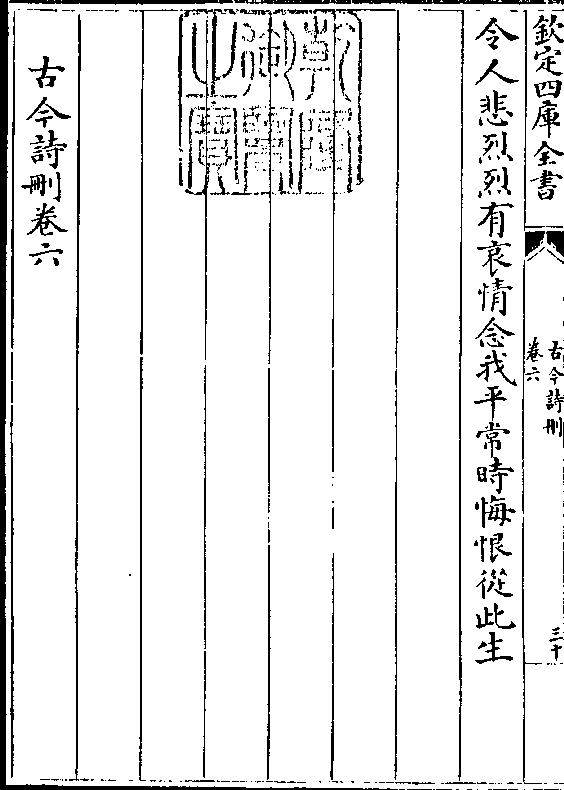 欽定四庫全書
古今詩刪
卷六
三十
令人悲烈烈有哀情念我平常時悔恨從此生
乾隆御覽之寶
古今詩刪卷六